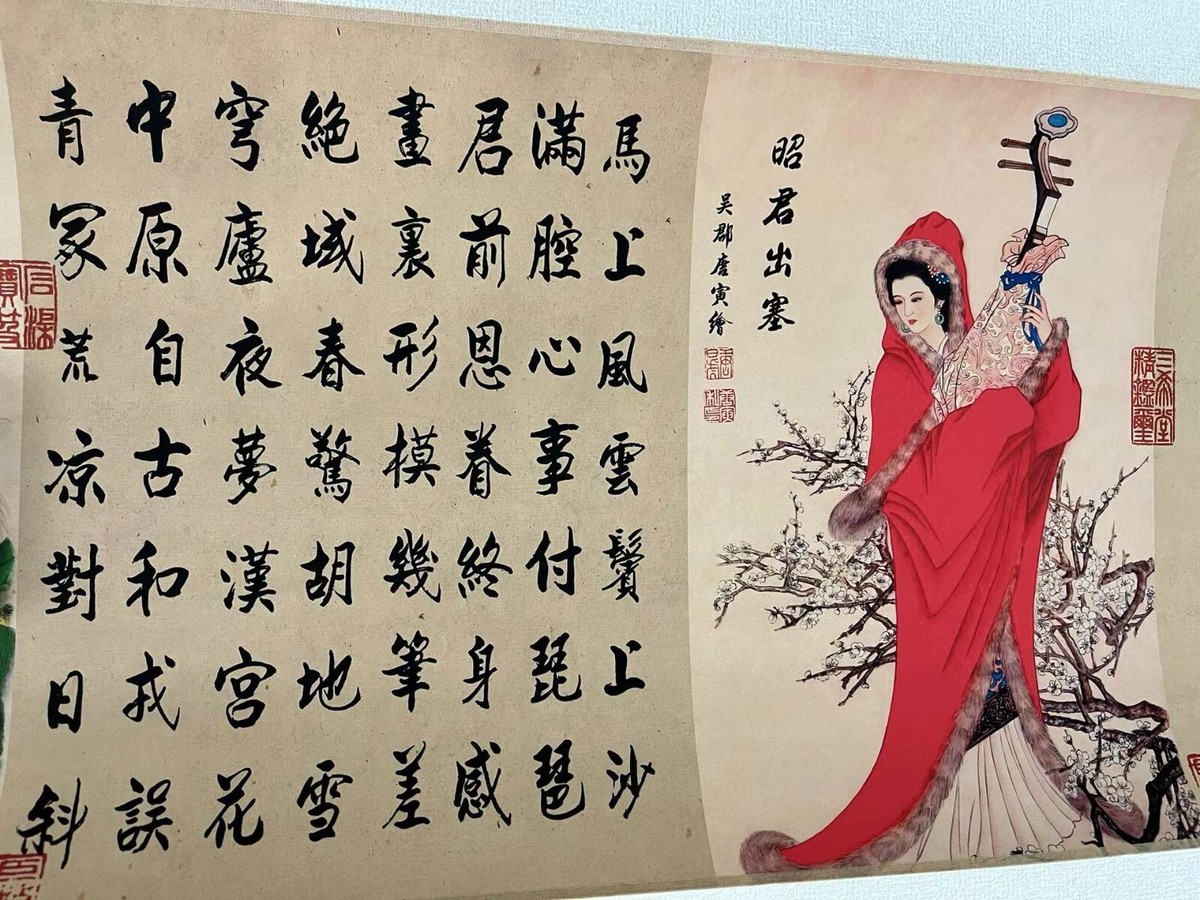 昭君出塞
吳郡唐寅繪
馬上風雲鬢上沙
滿腔心事付琵琶
君前恩眷終身感
畫裏形模幾筆差
絕域春驚胡地雪
穹廬夜夢漢宮花
中原自古和戎誤
青冢荒凉對日斜
三希堂精鑑璽